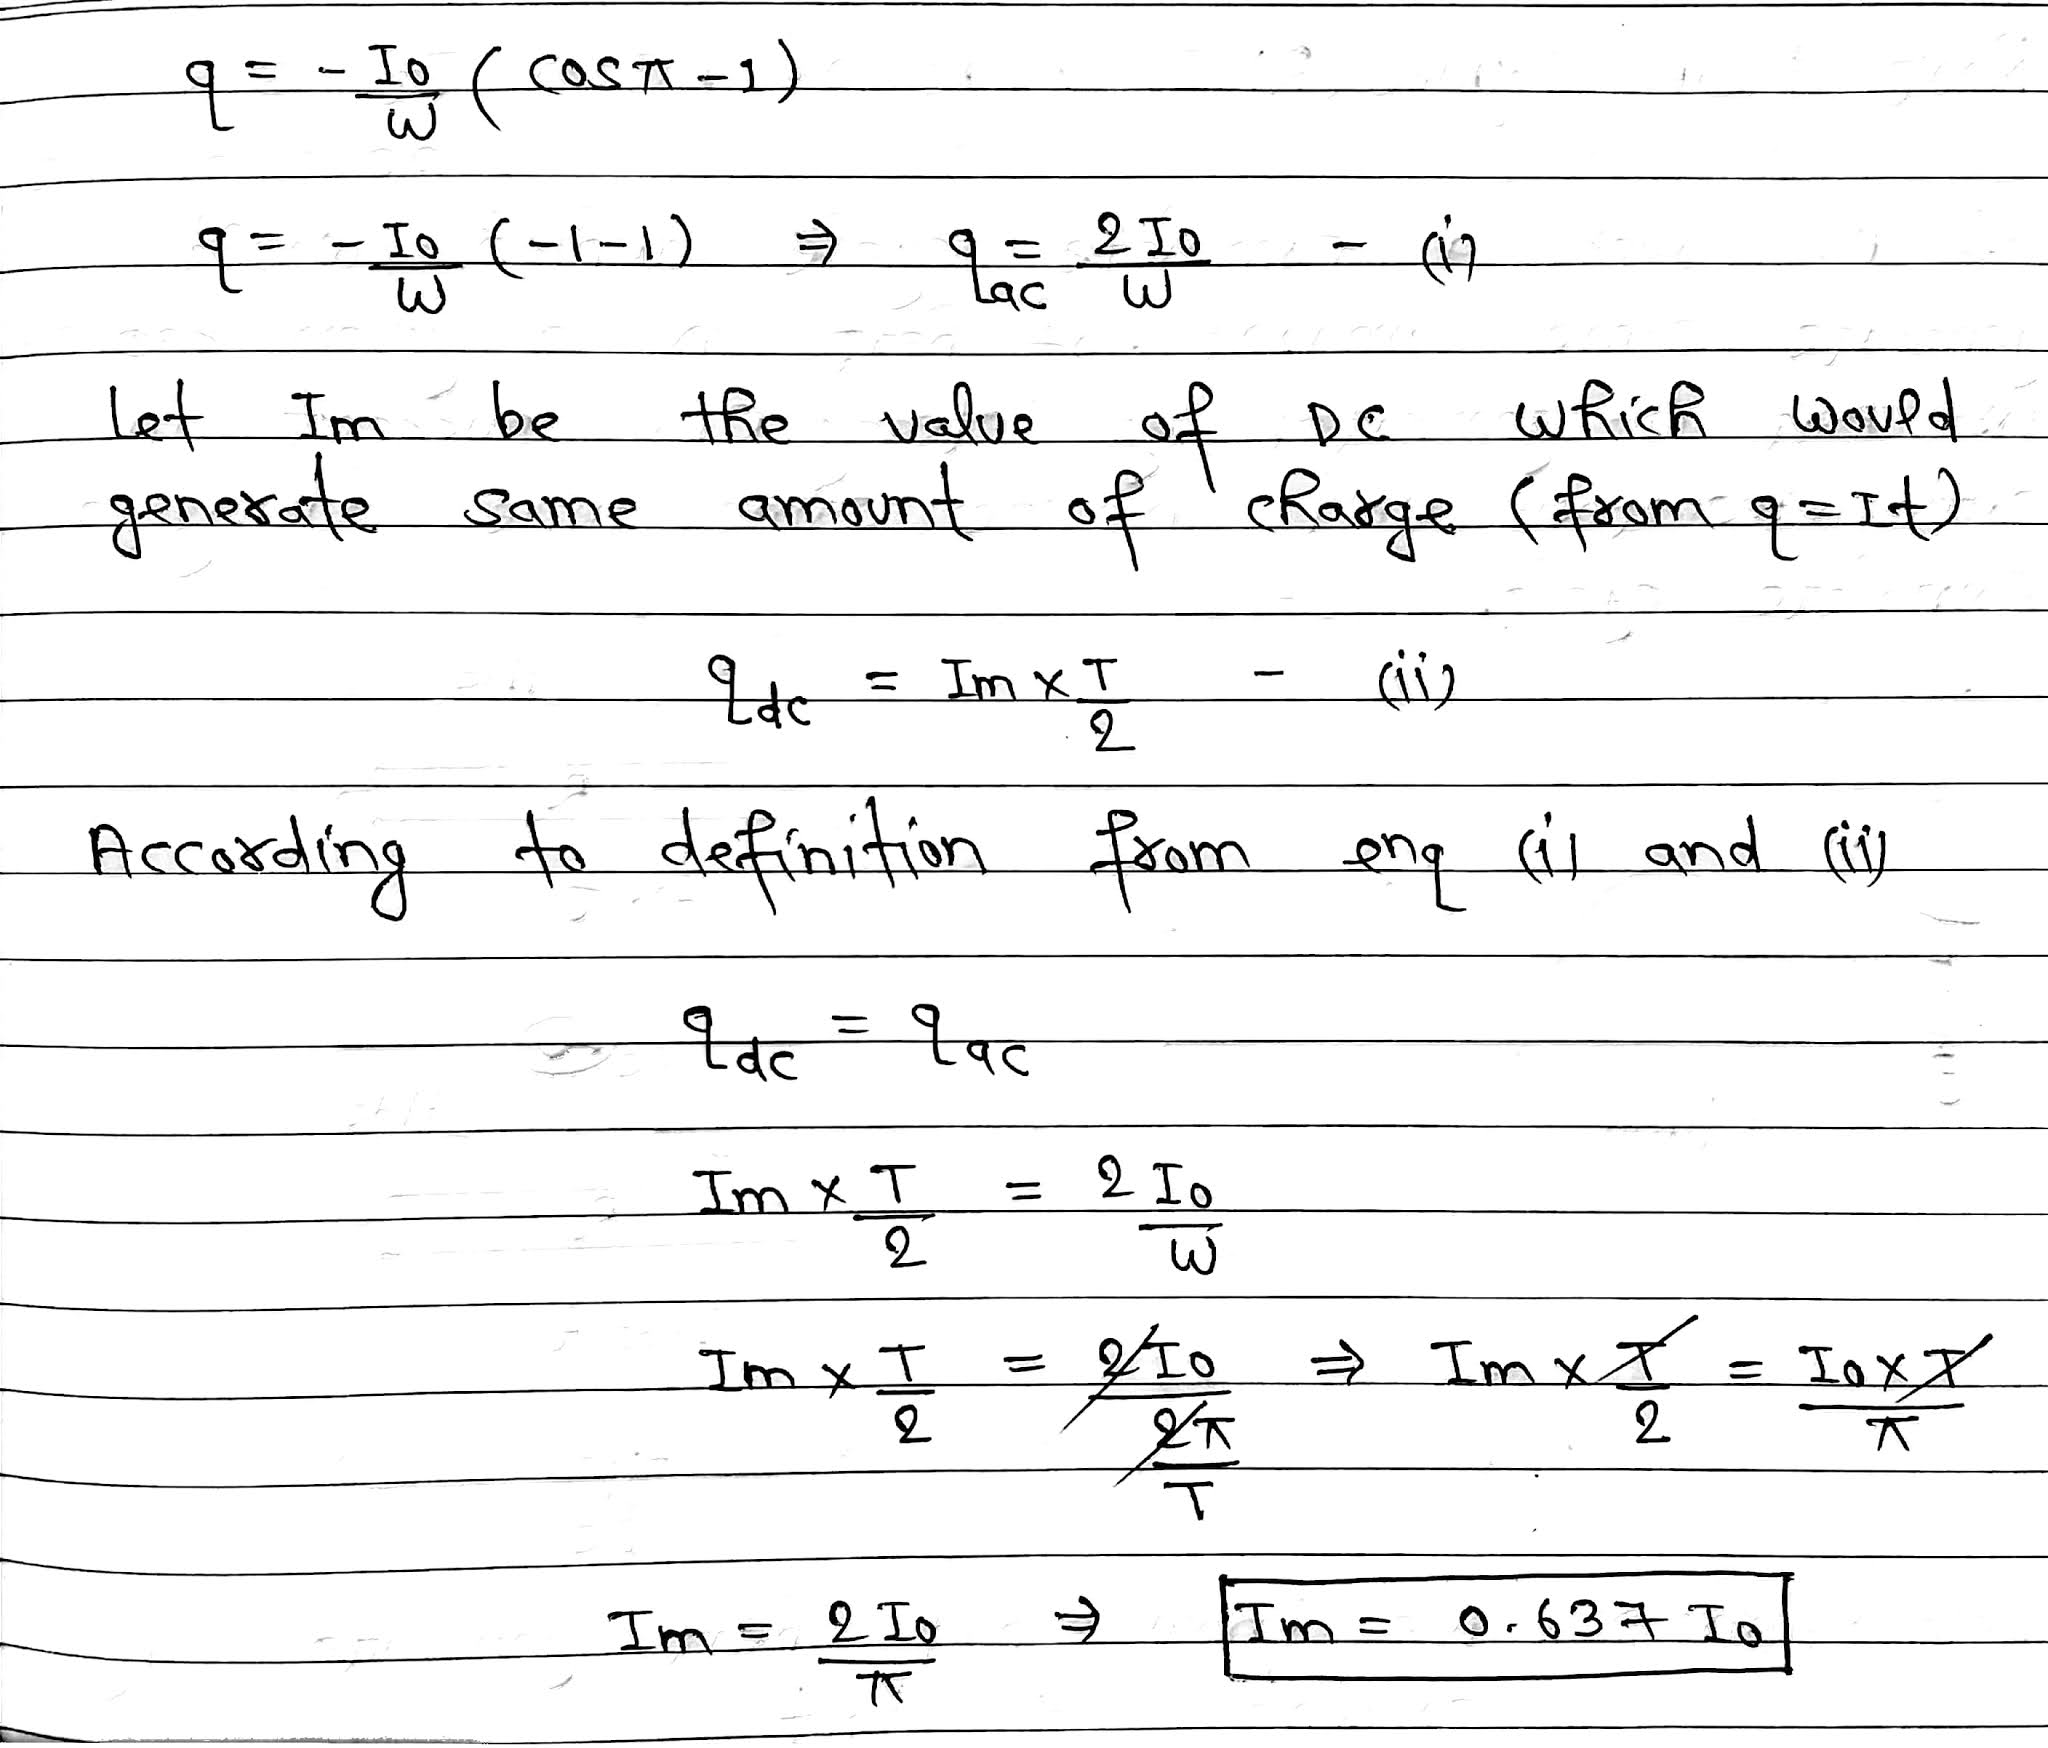 q = - I0/W ( cosπ - 1 )
q = - I0/W ( -1 -1 ) ⇒ qac = 2 I0/W - (i)
Let Im be the value of DC which would
generate same amount of charge ( from q = It )
qdc = Im x T/2 - (ii)
According to definition from enq (i) and (ii)
qdc = qac
Im x T/2 = 2 I0/W
Im x T/2 = 2 I0/(2π/T) ⇒ Im x T/2 = I0 x T/π
Im = 2 I0/π ⇒ Im = 0.637 I0